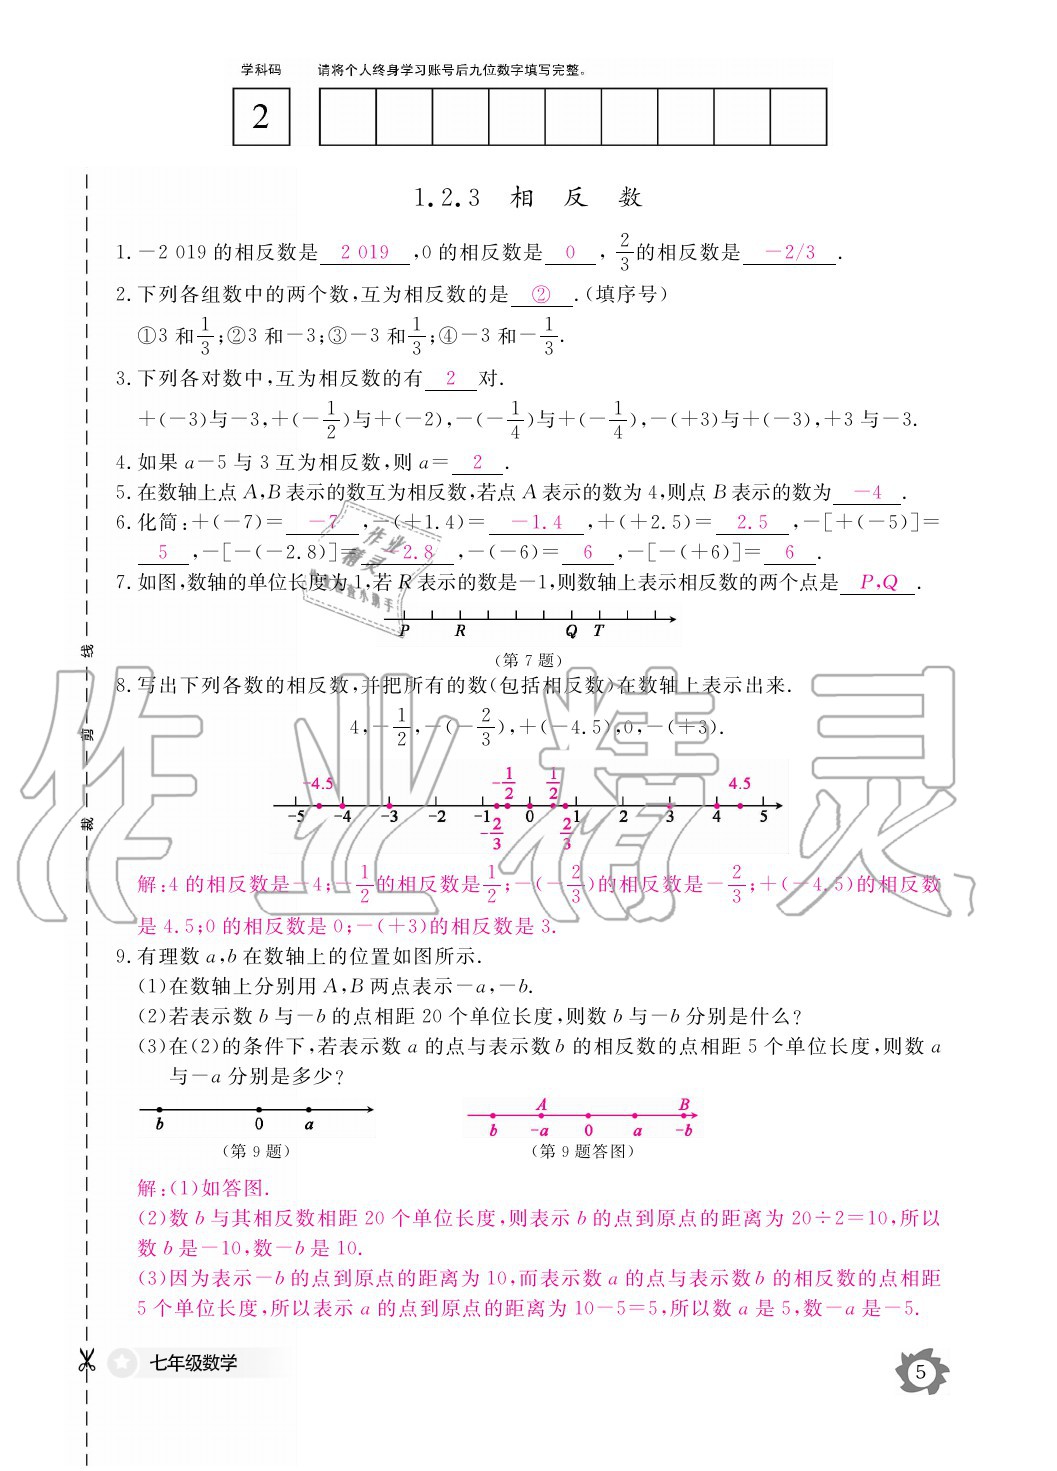 学科码 请将个人终身学习账号后九位数字填写完整。
2
1.2.3 相 反 数
1.－2 019的相反数是 2 019 ,0的相反数是 0 , 2/3的相反数是 －2/3 .
2.下列各组数中的两个数,互为相反数的是 ② .(填序号)
①3和1/3;②3和－3;③－3和1/3;④－3和－1/3.
3.下列各对数中,互为相反数的有 2 对.
＋(－3)与－3,＋(－1/2)与＋(－2),－(－1/4)与＋(－1/4),－(＋3)与＋(－3),＋3与－3.
4.如果a－5与3互为相反数,则a＝ 2 .
5.在数轴上点A,B表示的数互为相反数,若点A表示的数为4,则点B表示的数为 －4 .
6.化简:＋(－7)＝ －7 ,－(＋1.4)＝ －1.4 ,＋(＋2.5)＝ 2.5 ,－[＋(－5)]＝
5 ,－[－(－2.8)]＝ －2.8 ,－(－6)＝ 6 ,－[－(＋6)]＝ 6 .
7.如图,数轴的单位长度为1,若R表示的数是－1,则数轴上表示相反数的两个点是 P,Q .
P R Q T
(第7题)
8.写出下列各数的相反数,并把所有的数(包括相反数)在数轴上表示出来.
4,－1/2,－(－2/3),＋(－4.5),0,－(＋3).
-4.5 -1/2 1/2 4.5
-5 -4 -3 -2 -1 0 1 2 3 4 5
-2/3 2/3
解:4的相反数是－4;－1/2的相反数是1/2;－(－2/3)的相反数是－2/3;＋(－4.5)的相反数
是4.5;0的相反数是0;－(＋3)的相反数是3.
9.有理数a,b在数轴上的位置如图所示.
(1)在数轴上分别用A,B两点表示－a,－b.
(2)若表示数b与－b的点相距20个单位长度,则数b与－b分别是什么?
(3)在(2)的条件下,若表示数a的点与表示数b的相反数的点相距5个单位长度,则数a
与－a分别是多少?
b 0 a
(第9题)
A B
b -a 0 a -b
(第9题答图)
解:(1)如答图.
(2)数b与其相反数相距20个单位长度,则表示b的点到原点的距离为20÷2＝10,所以
数b是－10,数－b是10.
(3)因为表示－b的点到原点的距离为10,而表示数a的点与表示数b的相反数的点相距
5个单位长度,所以表示a的点到原点的距离为10－5＝5,所以数a是5,数－a是－5.
七年级数学
5
线
剪
裁
作业精灵
作业
精灵